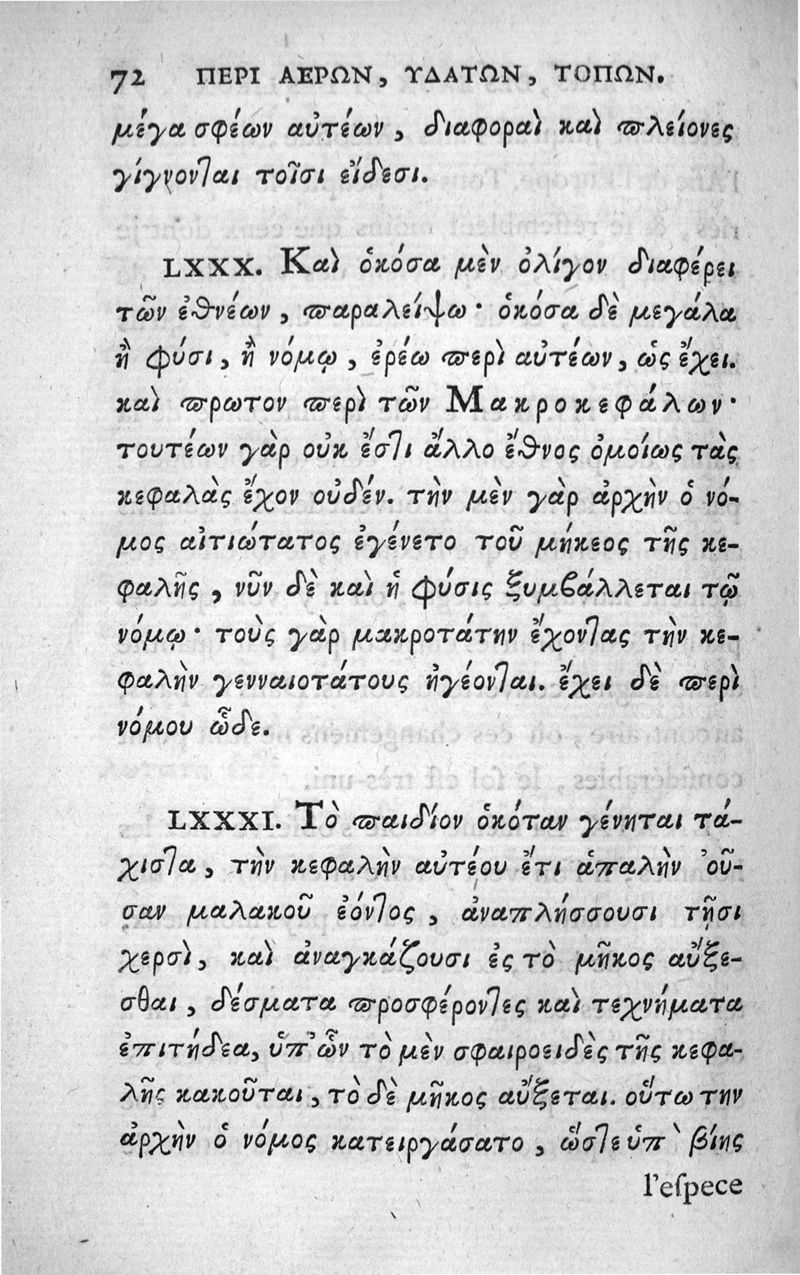 72 ΠΕΡΙ ΑΕΡΩΝ, ΥΔΑΤΩΝ, ΤΟΠΩΝ.
μέγα σφέων αὐτέων, διαφοραὶ καὶ πλείονες
γίγνονται τοῖσι εἴδεσι.
LXXX. Καὶ ὁκόσα μὲν ὀλίγον διαφέρει
τῶν ἐθνέων, παραλείψω· ὁκόσα δὲ μεγάλα
ἢ φύσι, ἢ νόμῳ, ἐρέω περὶ αὐτέων, ὡς ἔχει.
καὶ πρωτον περὶ τῶν Μακροκεφάλων·
τουτέων γὰρ οὐκ ἔστι ἄλλο ἔθνος ὁμοίως τὰς
κεφαλὰς ἔχον οὐδέν. τὴν μὲν γὰρ ἀρχὴν ὁ νό-
μος αἰτιώτατος ἐγένετο τοῦ μήκεος τῆς κε-
φαλῆς, νῦν δὲ καὶ ἡ φύσις ξυμβάλλεται τῷ
νόμῳ· τοὺς γὰρ μακροτάτην ἔχοντας τὴν κε-
φαλὴν γενναιοτάτους ἡγέονται. ἔχει δὲ περὶ
νόμου ὧδε.
LXXXI. Τὸ παιδίον ὁκόταν γένηται τά-
χιστα, τὴν κεφαλὴν αὐτέου ἔτι ἁπαλὴν οὖ-
σαν μαλακοῦ ἐόντος, ἀναπλήσσουσι τῇσι
χερσὶ, καὶ ἀναγκάζουσι ἐς τὸ μῆκος αὔξε-
σθαι, δέσματα προσφέροντες καὶ τεχνήματα
ἐπιτήδεα, ὑπ' ὧν τὸ μὲν σφαιροειδὲς τῆς κεφα-
λῆς κακοῦται, τὸ δὲ μῆκος αὔξεται. οὕτω την
ἀρχὴν ὁ νόμος κατειργάσατο, ὥστε ὑπὸ βίης
l'eſpece